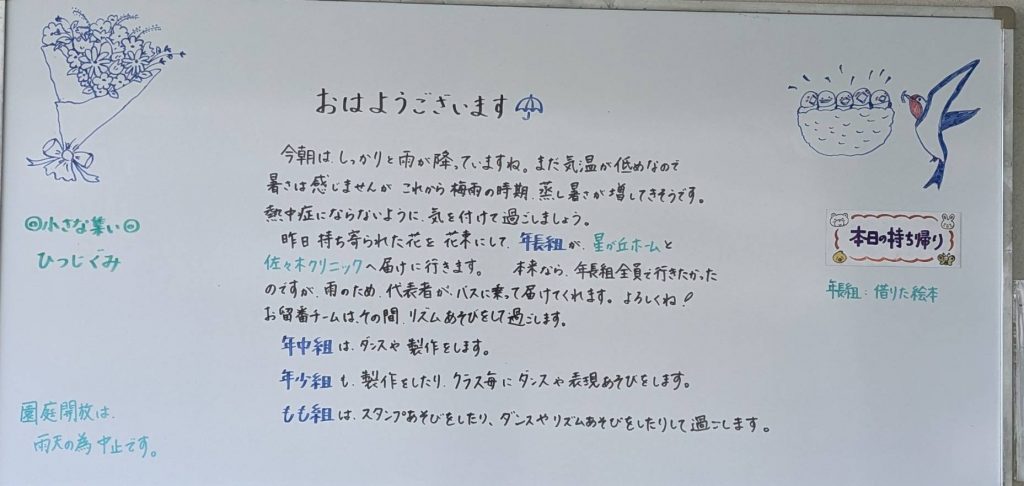 おはようございます
今朝は、しっかりと雨が降っていますね。まだ気温が低めなので
暑さは感じませんが、これから梅雨の時期、蒸し暑さが増してきそうです。
熱中症にならないように、気を付けて過ごしましょう。
昨日持ち寄られた花を花束にして、年長組が、星が丘ホームと
佐々木クリニックへ届けに行きます。 本来なら、年長組全員で行きたかった
のですが、雨のため、代表者が、バスに乗って届けてくれます。よろしくね!
お留番チームは、その間、リズムあそびをして過ごします。
年中組は、ダンスや製作をします。
年少組も、製作をしたり、クラス毎にダンスや表現あそびをします。
もも組は、スタンプあそびをしたり、ダンスやリズムあそびをしたりして過ごします。
◎小さな集い◎
ひつじぐみ
園庭開放は、
雨天の為中止です。
本日の持ち帰り
年長組:借りた絵本